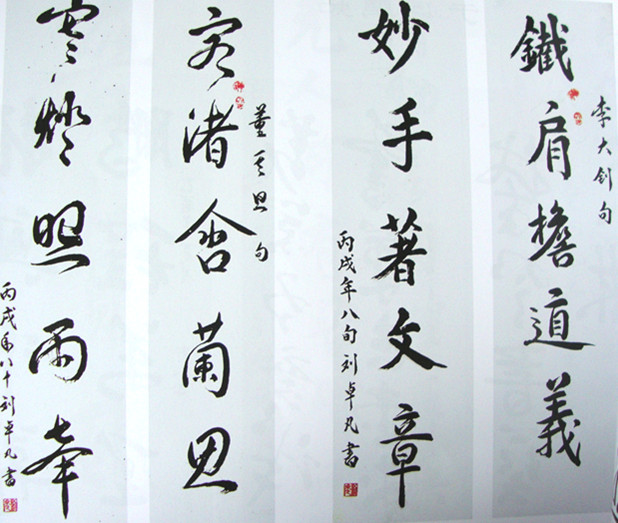 鐵肩擔道義
李大釗句
妙手著文章
丙戌年八旬刘卓凡書
客渚含蘭思
董其昌句
寒燈照雨
丙戌年八十刘卓凡書